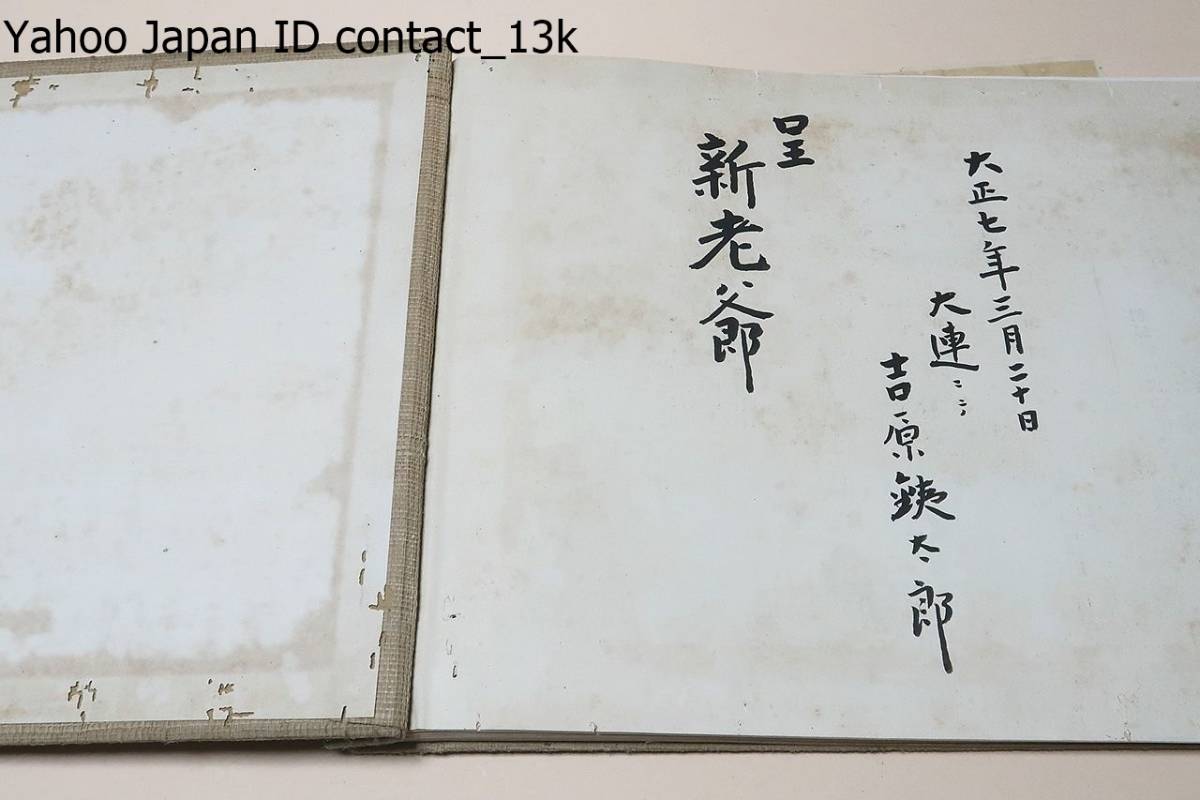 Yahoo Japan ID contact_13k
大正七年三月二十日
大連ニテ
吉原鉄太郎
呈
新老爺